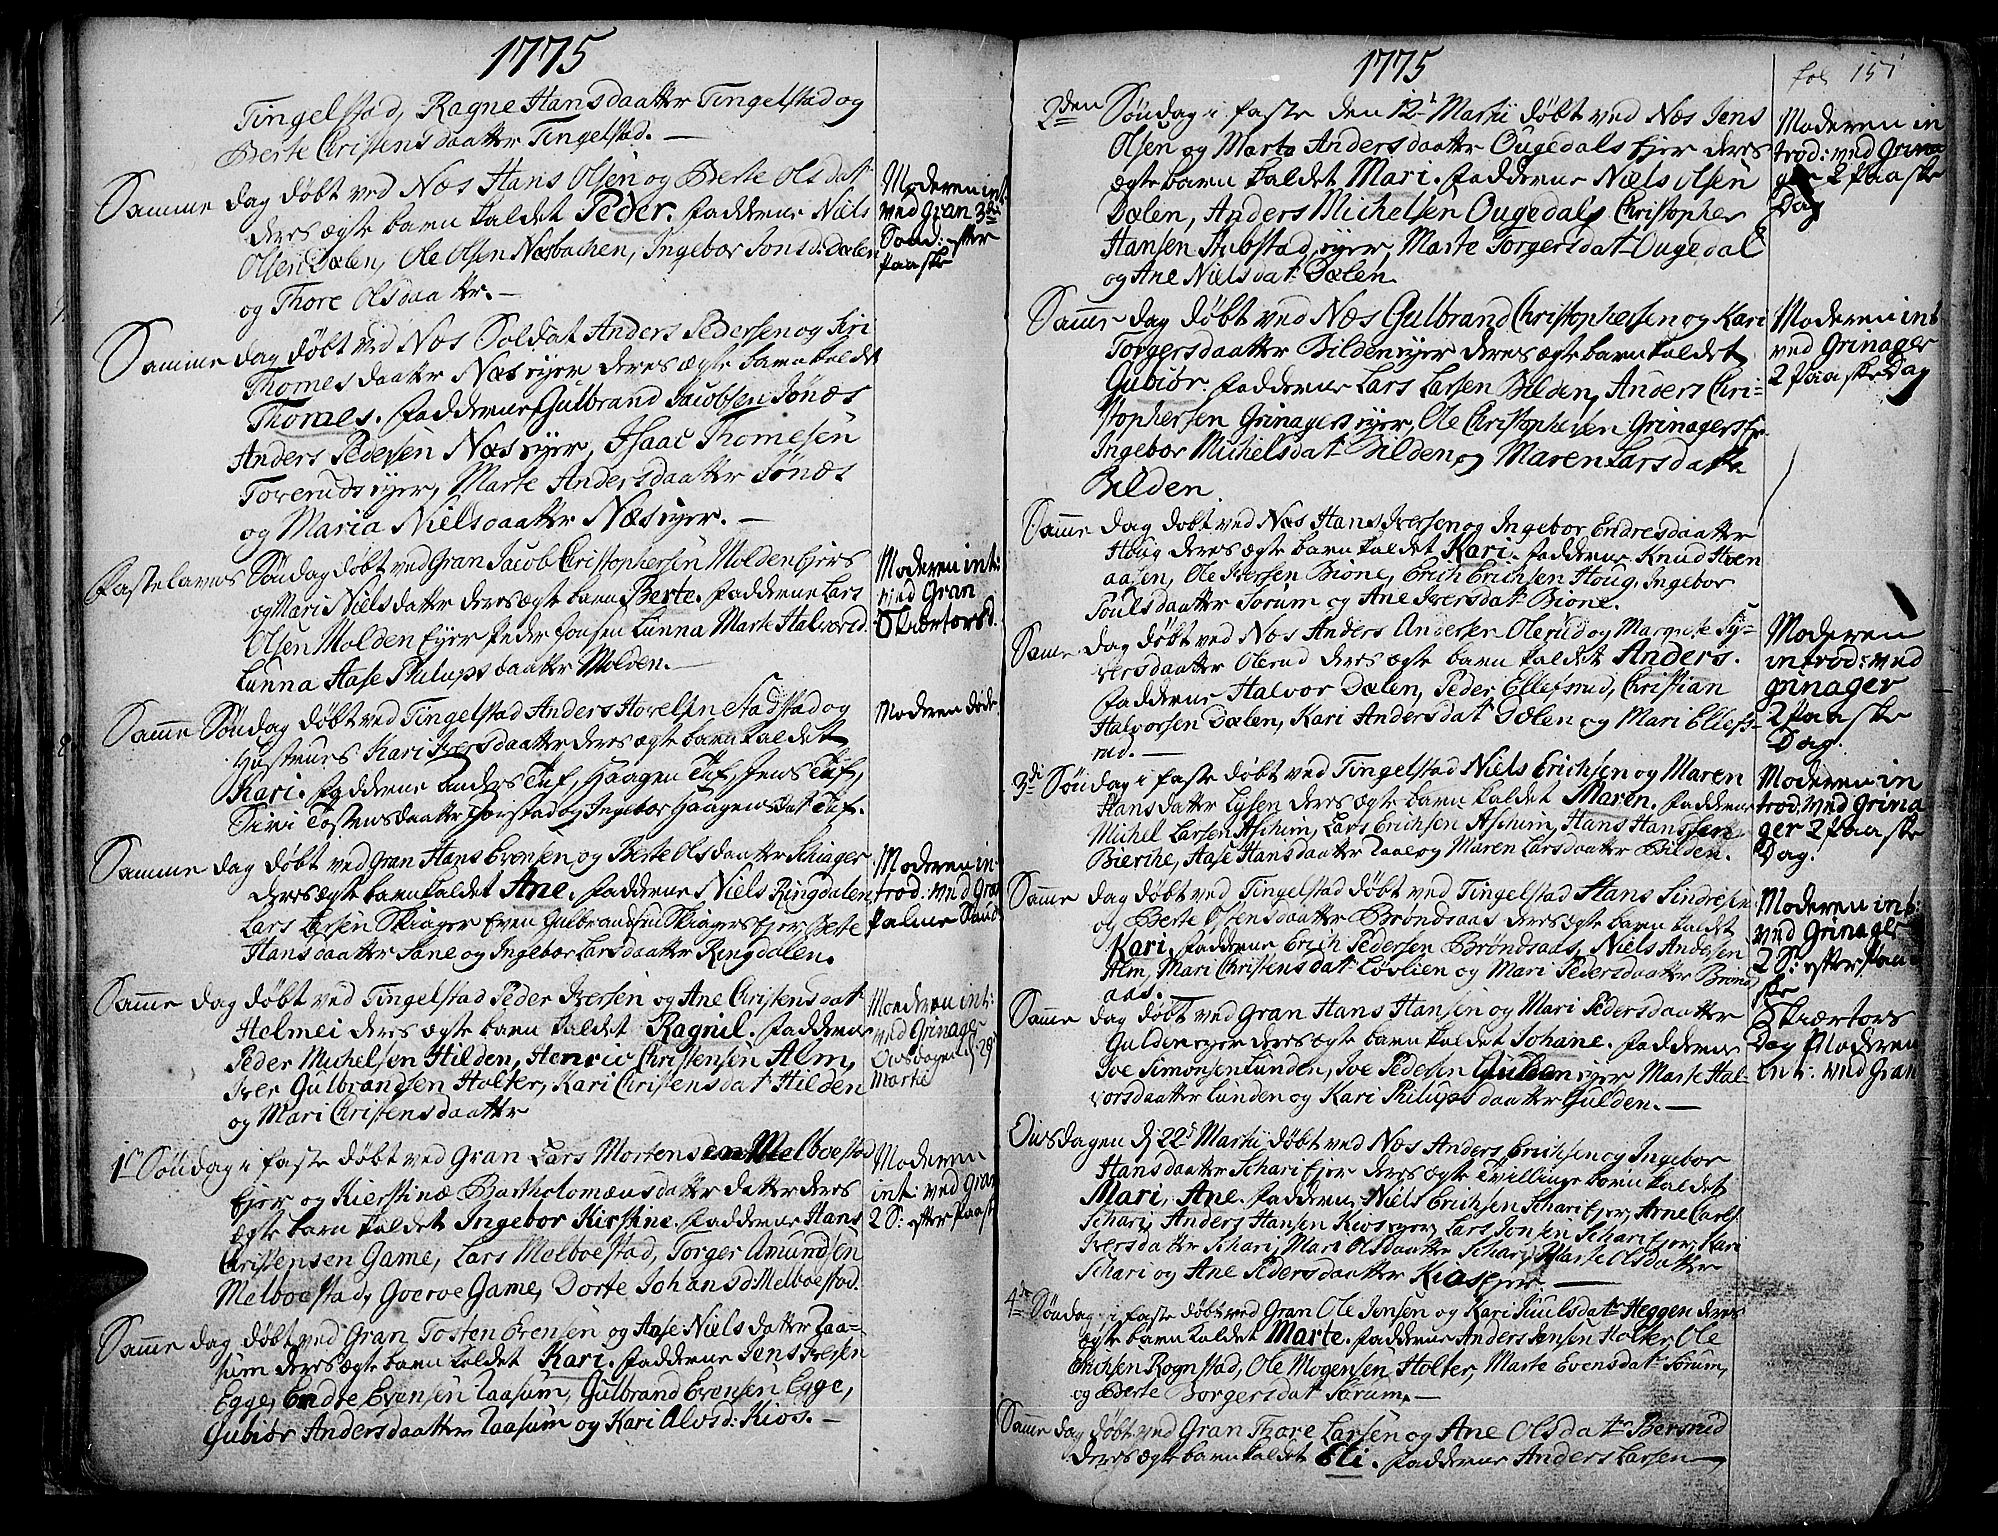 1775
Tingelstad, Ragne Hansdaatter Tingelstad og
Berte Christensdaatter Tingelstad. —
Samme dag døbt ved Næs Hans Olsen og Berte Olsdatt:
deres ægte barn kaldet Peder. Fadderne Niels
Olsen Dælen, Ole Olsen Næsbachen, Ingebor Jonsd: Dælen
og Thore Olsdaatter. —
Moderen int:
ved Gran 3die
Sønd: efter
Paaske
Samme dag døbt ved Næs Soldat Anders Pedersen og Siri
Thomesdaatter Næs eyer deres ægte barn kaldet
Thomes. Fadderne Gulbrand Jacobsen Jønæs
Anders Pedersen Næs eyer, Isaac Thomesen
Toveruds eyer, Marte Andersdaatter Jønæs
og Maria Nielsdaatter Næs eyer. —
Fastelavns Søndag døbt ved Gran Jacob Christophersen Molden Eiers
og Mari Nielsdatter deres ægte barn Berte. Fadderne Lars
Olsen Molden Eyer Peder Jonsen Lunna Marte Halvorsd.
Lunna Aase Philupsdaatter Molden. —
Moderen int:
ved Gran
Skiærtorsd.
Samme Søndag døbt ved Tingelstad Anders Hovelsen Stadstad og
Hustrues Kari Iversdaatter deres ægte barn kaldet
Kari. Fadderne Anders Tuf, Haagen Tuf, Jens Tuf,
Sivi Tostensdaatter og Ingebor Haagensdat. Tuf.
Moderen døde.
Samme dag døbt ved Gran Hans Evensen og Berte Olsdaatter Skiager
deres ægte barn kaldet Ane. Fadderne Niels Ringdalen
Lars Larsen Skiager Even Gulbrandsen Skiagers Ejer Berte
Hansdaatter Sane og Ingebor Larsdaatter Ringdalen.
Moderen in-
trod: ved Gran
Palme Sønd
Samme dag døbt ved Tingelstad Peder Iversen og Ane Christensdat:
Helmei deres ægte barn kaldet Ragnil. Fadderne
Peder Michelsen Hilden, Henric Christensen Alm,
Iver Gulbrandsen Holter, Kari Christensdat: Hilden
og Mari Christensdaatter
Moederen int:
ved Grinager
Onsdagen d: 29
Martie
1te Søndag i Faste døbt ved Gran Lars Mortensen Melboestad
Ejer og Kierstine Bartholomæusdatter datter deres
ægte barn kaldet Ingebor Kirstine. Fadderne Hans
Christensen Game, Lars Melboestad, Torger Amundsen
Melboestad, Goeroe Game, Dorte Johansd: Melboestad.
Moderen
int: ved Gran
2 S: efter Paask
Samme dag døbt ved Gran Tosten Evensen og Aase Nielsdatter Raa-
sum deres ægte barn kaldet Kari. Fadderne Jens Iversen
Egge, Endre Evensen Raasum, Gulbrand Evensen Egge,
Gubiør Andersdaatter Raasum og Kari Alvsd: Kios. —
1775
fol 151
2den Søndag i Faste den 12te Martii døbt ved Næs Jens
Olsen og Marta Andersdaatter Ougedals Ejer deres
ægte barn kaldet Mari. Fadderne Niels Olsen
Dælen, Anders Michelsen Ougedals Christopher
Hansen Hubstad eyer, Marte Torgersdat: Ougedal
og Ane Nielsdat: Dælen.
Moderen in
trod: ved Grina
ger 2 Paaske
Dag
Samme dag døbt ved Næs Gulbrand Christophersen og Kari
Torgersdaatter Bilden eyer deres ægte barn kaldet
Gubiør. Fadderne Lars Larsen Bilden, Anders Chri-
stophersen Grinagers eyer, Ole Christophersen Grinagers Ejr.
Ingebor Michelsdat: Bilden og Maren Larsdatter
Bilden.
Moderen int
ved Grinager
2 Paaske Dag
Samme dag døbt ved Næs Hans Iversen og Ingebor Endresdaatter
Houg deres ægte barn kaldet Kari. Fadderne Knud Hven
aasen, Ole Iversen Bione, Erich Erichsen Houg, Ingebor
Poulsdaatter Sørum og Ane Iversdat: Bione.
Same dag døbt ved Næs Anders Andersen Olerud og Margrete Sy-
versdaatter Olerud deres ægte barn kaldet Anders.
Fadderne Halvor Dælen, Peder Ellefsrud, Christian
Halvorsen Dælen, Kari Andersdat: Dælen og Mari Ellefs-
rud. —
Moderen
introd: ved
Grinager
2 Paaske
Dag.
3die Søndag i Faste døbt ved Tingelstad Niels Erichsen og Maren
Hansdatter Lysen deres ægte barn kaldet Maren. Fadderne
Michel Larsen Aschim, Lars Erichsen Aschim, Hans Hanssen
Bierche, Aase Hansdaatter Raal og Maren Larsdaatter Bilden.
Moderen in
trod: ved Grina
ger 2 Paaske
Dag.
Samme dag døbt ved Tingelstad døbt ved Tingelstad Hans Sindresen
og Berte Olsensdaatter Brøndsaas deres ægte barn kaldet
Kari. Fadderne Erich Pedersen Brøndsaas, Niels Andersen
Alm, Mari Christensdat: Løvlien og Mari Pedersdaatter Brønd
aas. —
Moderen int:
ved Grinager
2 S: efter Paa-
ske
Samme dag døbt ved Gran Hans Hansen og Mari Pedersdaatter
Gulden eyer deres ægte barn kaldet Johane. Fadderne
Iver Simonsen Lunden, Iver Pedersen Gulden eyer Marte Hal-
vorsdaatter Lunden og Kari Philupsdaatter Gulden. —
Skiærtors
Dag Moderen
int: ved Gran
Onsdagen d: 22de Martii døbt ved Næs Anders Erichsen og Ingebor
Hansdaatter Schari Ejer deres ægte Tvillinge børn kaldet
Mari, Ane. Fadderne Niels Erichsen Schari Ejer, Arne Carls:
Schari, Anders Hansen Kios eyer, Lars Jonsen Schari Ejer, Kari
Iversdatter Schari, Mari Olsdaatter Schari, Marte Olsdatter
Schari og Ane Pedersdaatter Kios Ejer —
4de Søndag i Faste døbt ved Gran Ole Jensen og Kari Poulsdatr Heggen deres
ægte barn kaldet Marte. Fadderne Anders Jensen Holter Ole
Erichsen Rognstad, Ole Mogensen Holter, Marte Evensdat: Sørum,
og Berte Borgersdat: Sørum. —
Samme dag døbt ved Gran Thore Larsen og Ane Olsdatr Bersrud
deres ægte barn kaldet Eli. Fadderne Anders Larsen —